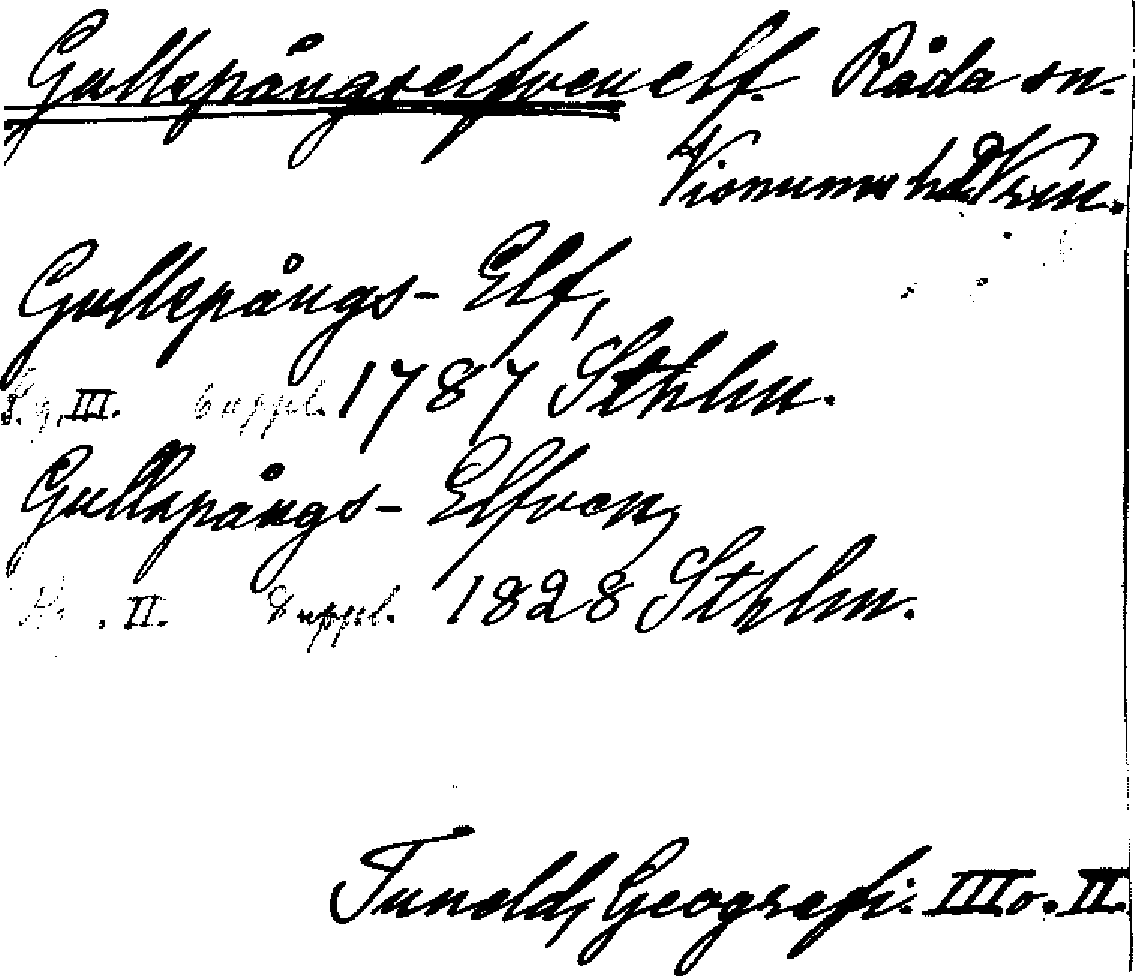 Gullspångselfven elf. Råda sn.
Visnums hd. Vrm.
Gullspångs-Elf,
III. Suppl. 1787 Sthlm.
Gullspångs-Elfven,
II. Suppl. 1828 Sthlm.
Tuneld, Geografi. III o. II.